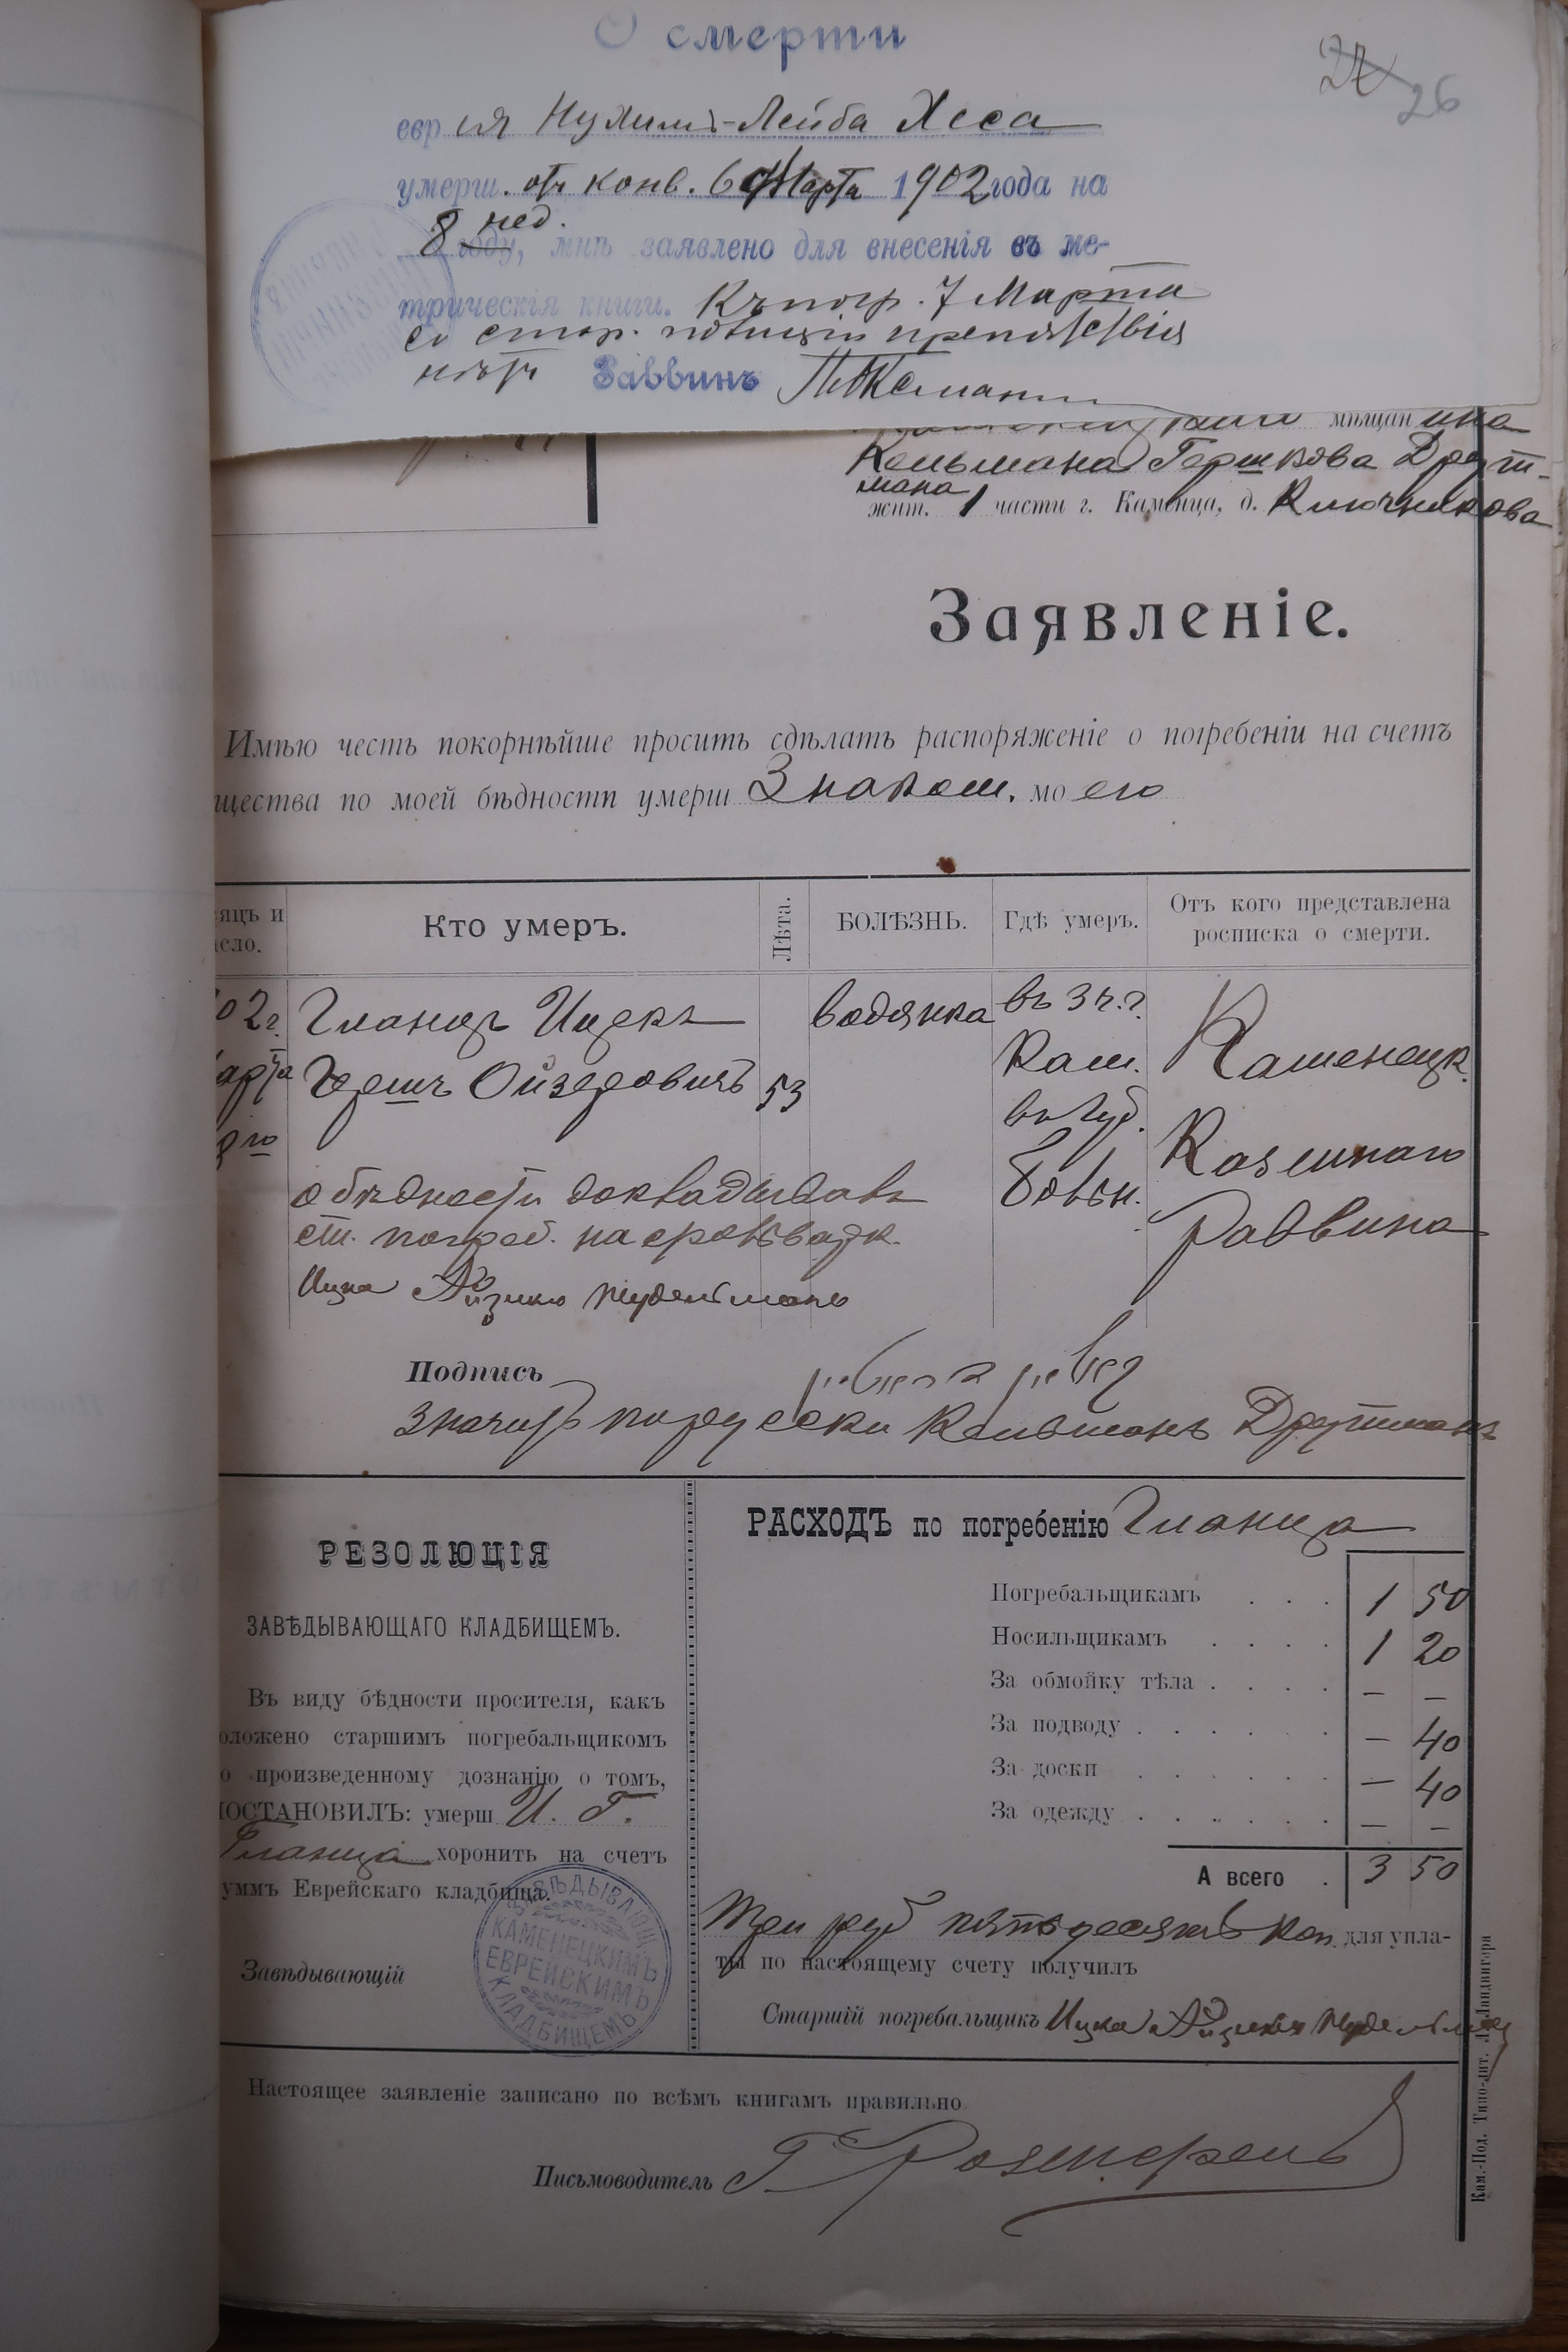 О смерти
27 26
евр ея Нухимъ-Лейба Хеса
умерш. отъ конв. 6 Марта 1902 года на
8 нед. году, мнѣ заявлено для внесенія въ ме-
трическія книги. Къ погр. 7 Марта
со стор. полиціи препятствія
нѣтъ Раввинъ
мѣщанина
Кельмана Гершкова Друт-
мана
жит. 1 части г. Каменца, д. Ключникова
Заявленіе.
Имѣю честь покорнѣйше просить сдѣлать распоряженіе о погребеніи на счетъ
щества по моей бѣдности умерш Знаком. моего
яцъ и
сло.
Кто умеръ.
Лѣта.
БОЛѢЗНЬ.
Гдѣ умеръ.
Отъ кого представлена
росписка о смерти.
02 г.
арта
8го
Гланцъ Ицекъ
Гершъ Ойзеровичъ
53
водянка
въ 3 ч. г.
Кам.
въ губ.
больн.
Каменецк.
Казеннаго
Раввина
о бѣдности докладывалъ
ст. погреб.
Ицка Айзикъ Нудельманъ
Подпись
значитъ по русски Кельманъ Друтманъ
РЕЗОЛЮЦІЯ
ЗАВѢДЫВАЮЩАГО КЛАДБИЩЕМЪ.
Въ виду бѣдности просителя, какъ
оложено старшимъ погребальщикомъ
о произведенному дознанію о томъ,
ПОСТАНОВИЛЪ: умерш И. Г.
Гланца хоронить на счетъ
уммъ Еврейскаго кладбища.
Завѣдывающій
ЗАВѢДЫВАЮЩ.
КАМЕНЕЦКИМЪ
ЕВРЕЙСКИМЪ
КЛАДБИЩЕМЪ
РАСХОДЪ по погребенію Гланца
Погребальщикамъ . . . 1 50
Носильщикамъ . . . . 1 20
За обмойку тѣла . . . . — —
За подводу . . . . . . — 40
За доски . . . . . . — 40
За одежду . . . . . . — —
А всего . 3 50
Три руб пятьдесятъ коп. для упла-
ты по настоящему счету получилъ
Старшій погребальщикъ Ицка Айзикъ Нудельман
Настоящее заявленіе записано по всѣмъ книгамъ правильно
Письмоводитель Г Розенфельд
Кам.-Под. Типо-лит. Л. Ландвигера